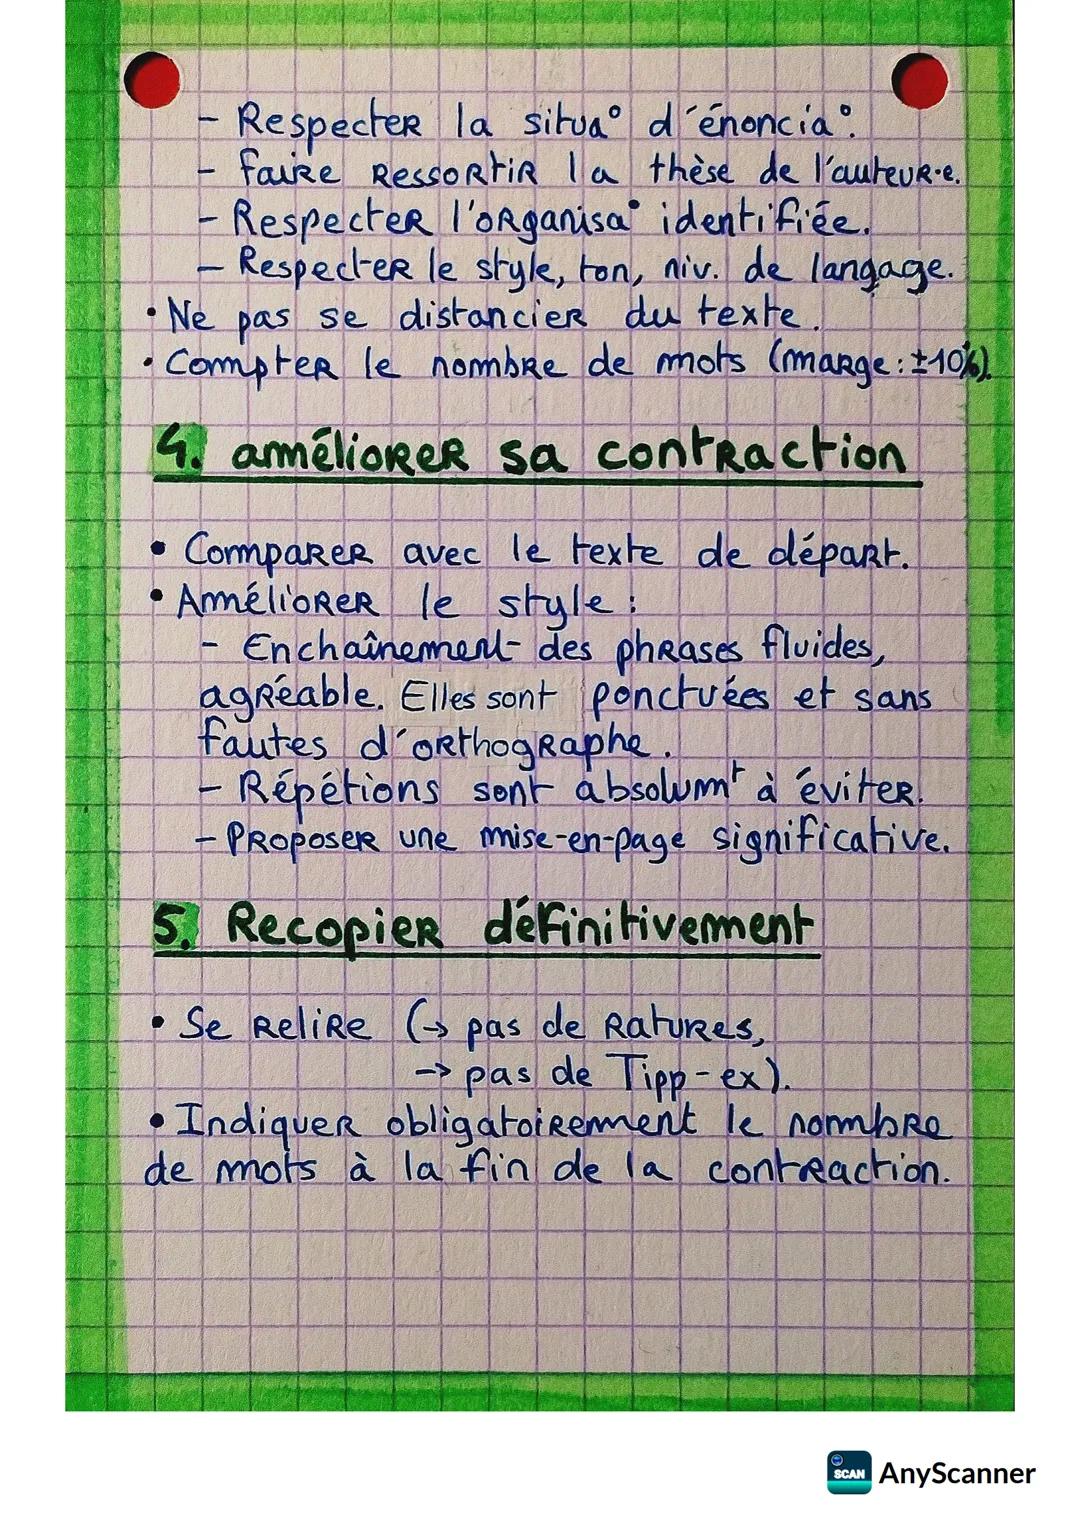 - Respecter la situa° d'énoncia°.
- faire ressortir la thèse de l'auteur·e.
- Respecter l'organisa° identifiée.
- Respecter le style, ton, niv. de langage.
• Ne pas se distancier du texte.
• Compter le nombre de mots (marge : ±10%).
4. améliorer sa contraction
• Comparer avec le texte de départ.
• Améliorer le style :
- Enchaînement des phrases fluides,
agréable. Elles sont ponctuées et sans
fautes d'orthographe.
- Répétions sont absolumt à éviter.
- Proposer une mise-en-page significative.
5. Recopier définitivement
• Se relire (→ pas de ratures,
→ pas de Tipp-ex).
• Indiquer obligatoirement le nombre
de mots à la fin de la contraction.
SCAN AnyScanner